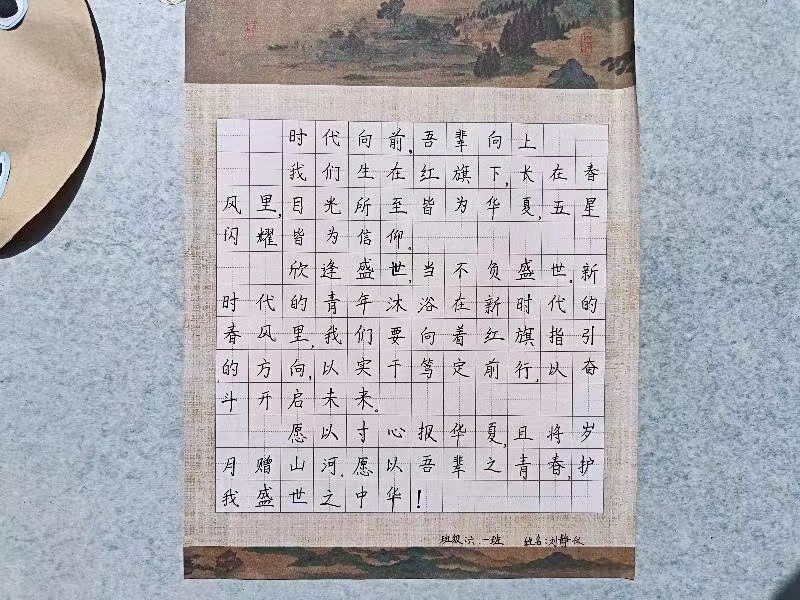 时代向前，吾辈向上
我们生在红旗下，长在春
风里，目光所至皆为华夏，五星
闪耀皆为信仰。
欣逢盛世，当不负盛世。新
时代的青年沐浴在新时代的
春风里，我们要向着红旗指引
的方向，以实干笃定前行，以奋
斗开启未来。
愿以寸心报华夏，且将岁
月赠山河。愿以吾辈之青春，护
我盛世之中华！
班级：六.一班 姓名：刘静